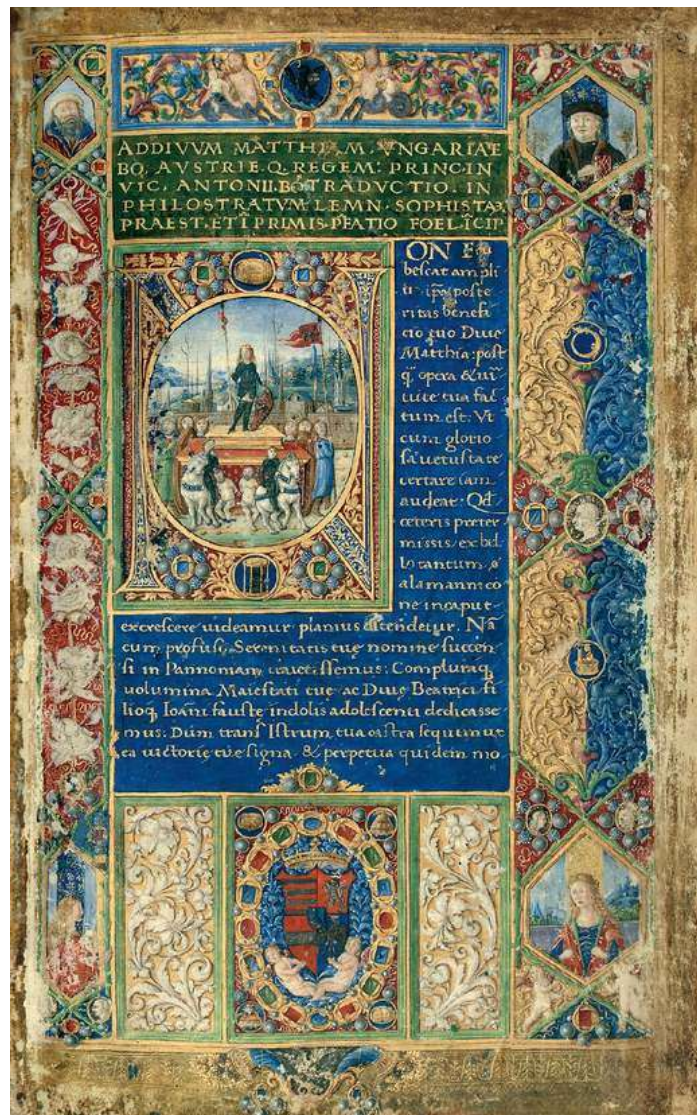 AD DIVVM MATTHIAM. VNGARIAE
BO. AVSTRIE. Q. REGEM: PRINC. IN
VIC. ANTONII. B. TRADVCTIO. IN
PHILOSTRATVM. LEMN. SOPHISTA
PRAEST. ET I PRIMIS. PFATIO FOELICIP
ON
bescat ampli
ti ipa poste
ritas benefi
cio quo Diue
Matthia: post
q̃ opera & uir
tute tua fac
tum est: Vt
cum glorio
sa uetustate
certare iam
audeat: Qd
ceteris preter
missis ex bib
tantum
ala manni co
ne in caput
excrescere uideamur planius ostendetur. Nā
cum profusi Serenitatis tuę nomine succen
si in Pannoniam: Compluraq
uolumina Maiestati tuę ac Diuę Beatrici fi
lioq Ioani faustę indolis adolescenti dedicasse
mus: Dum trans Istrum tua castra sequimur
ea uictorię tuę signa & perpetua quidem mo